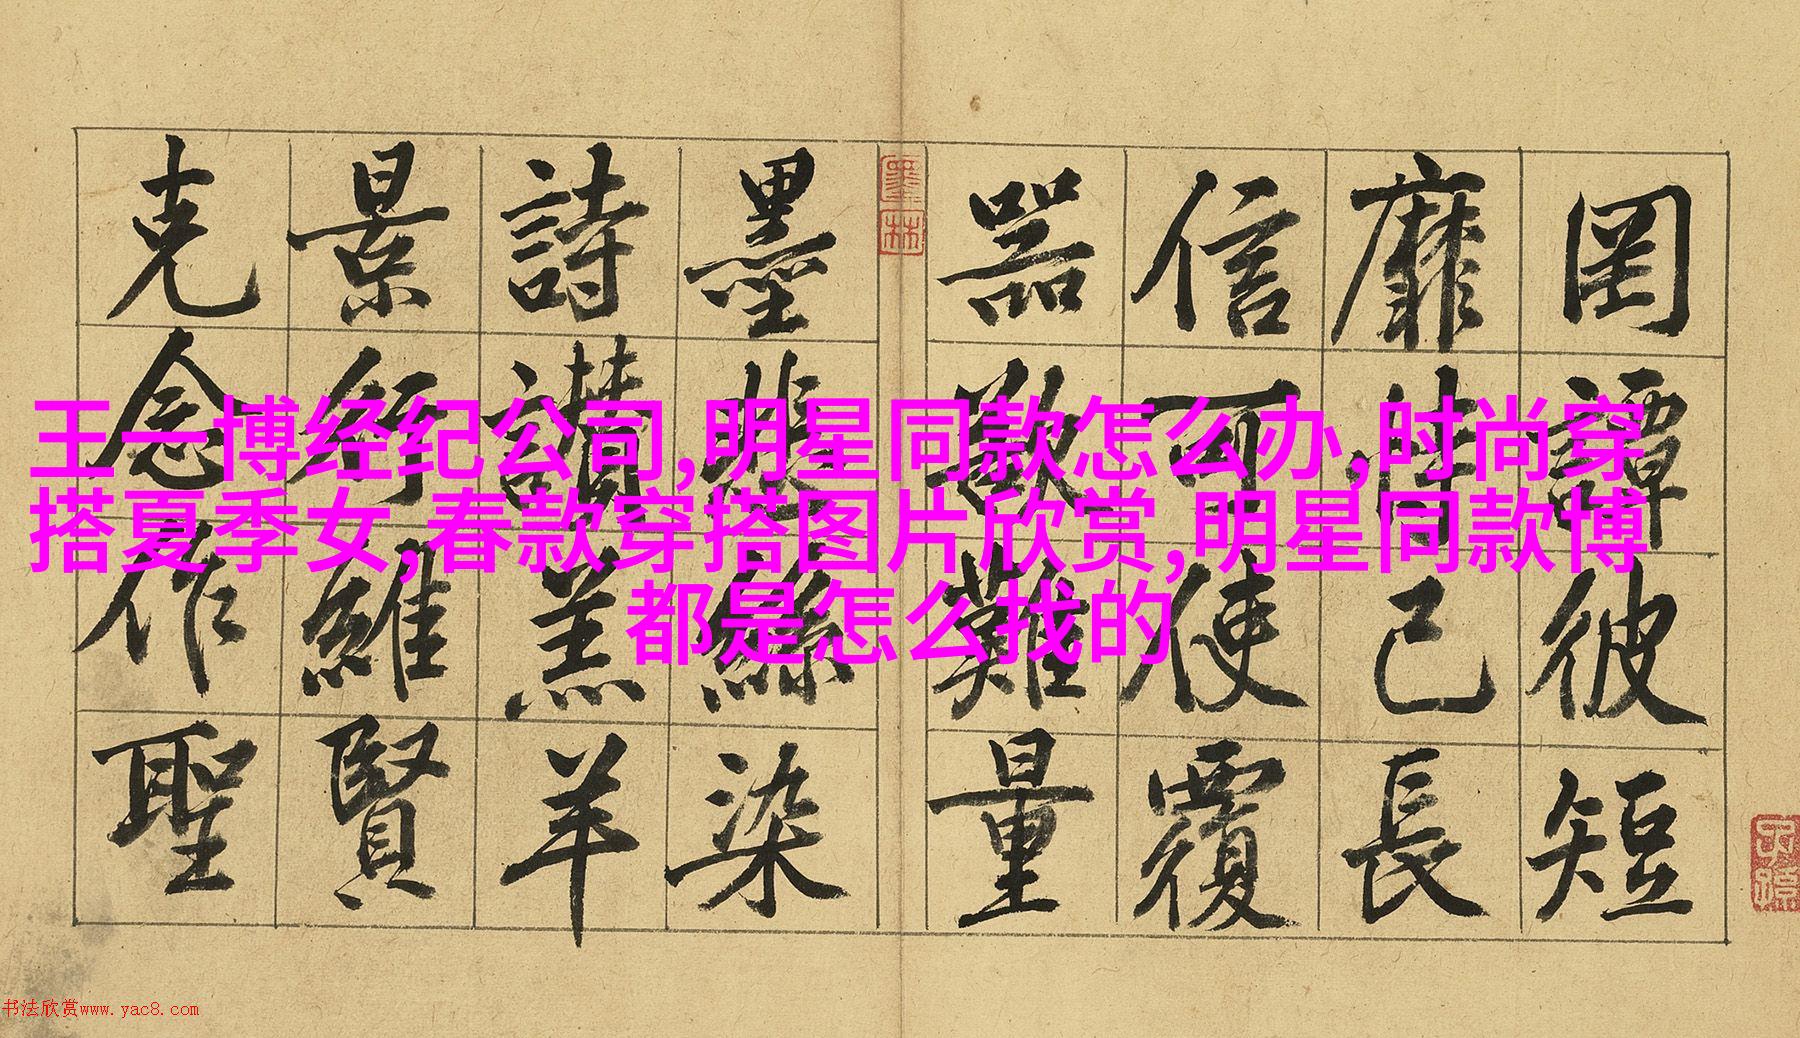 王一博经纪公司,明星同款怎么办,时尚穿
搭夏季女,春款穿搭图片欣赏,明星同款博
都是怎么找的
罔譚彼短
靡恃己長
信可使覆
器欲難量
墨林
墨悲絲染
詩讚羔羊
景行維賢
克念作聖
子孫
书法欣赏www.yac8.com